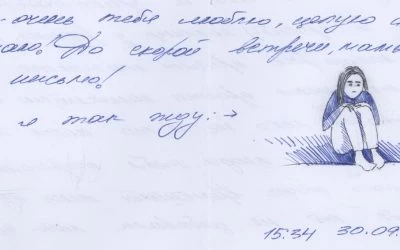 очень тебя люблю, целую и
До скорой встречи, мам
письмо!
я так жду: →
15.34 30.09.